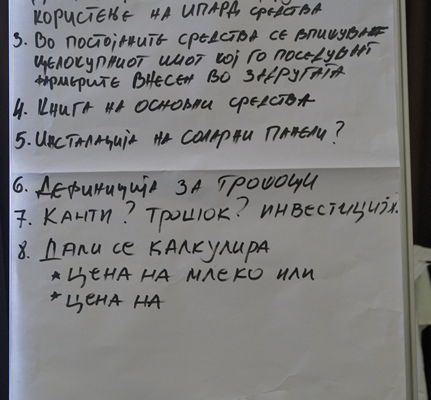 КОРИСТЕЊЕ НА ИПАРД СРЕДСТВА
3. ВО ПОСТОЈАНИТЕ СРЕДСТВА СЕ ВПИШУВААТ
ЦЕЛОКУПНИОТ ИМОТ КОЈ ГО ПОСЕДУВААТ
ФАРМЕРИТЕ ВНЕСЕН ВО ЗАДРУГАТА
4. КНИГА НА ОСНОВНИ СРЕДСТВА
5. ИНСТАЛАЦИЈА НА СОЛАРНИ ПАНЕЛИ?
6. ДЕФИНИЦИЈА ЗА ТРОШОЦИ
7. КАНТИ? ТРОШОК? ИНВЕСТИЦИЈА.
8. ДАЛИ СЕ КАЛКУЛИРА
* ЦЕНА НА МЛЕКО ИЛИ
* ЦЕНА НА